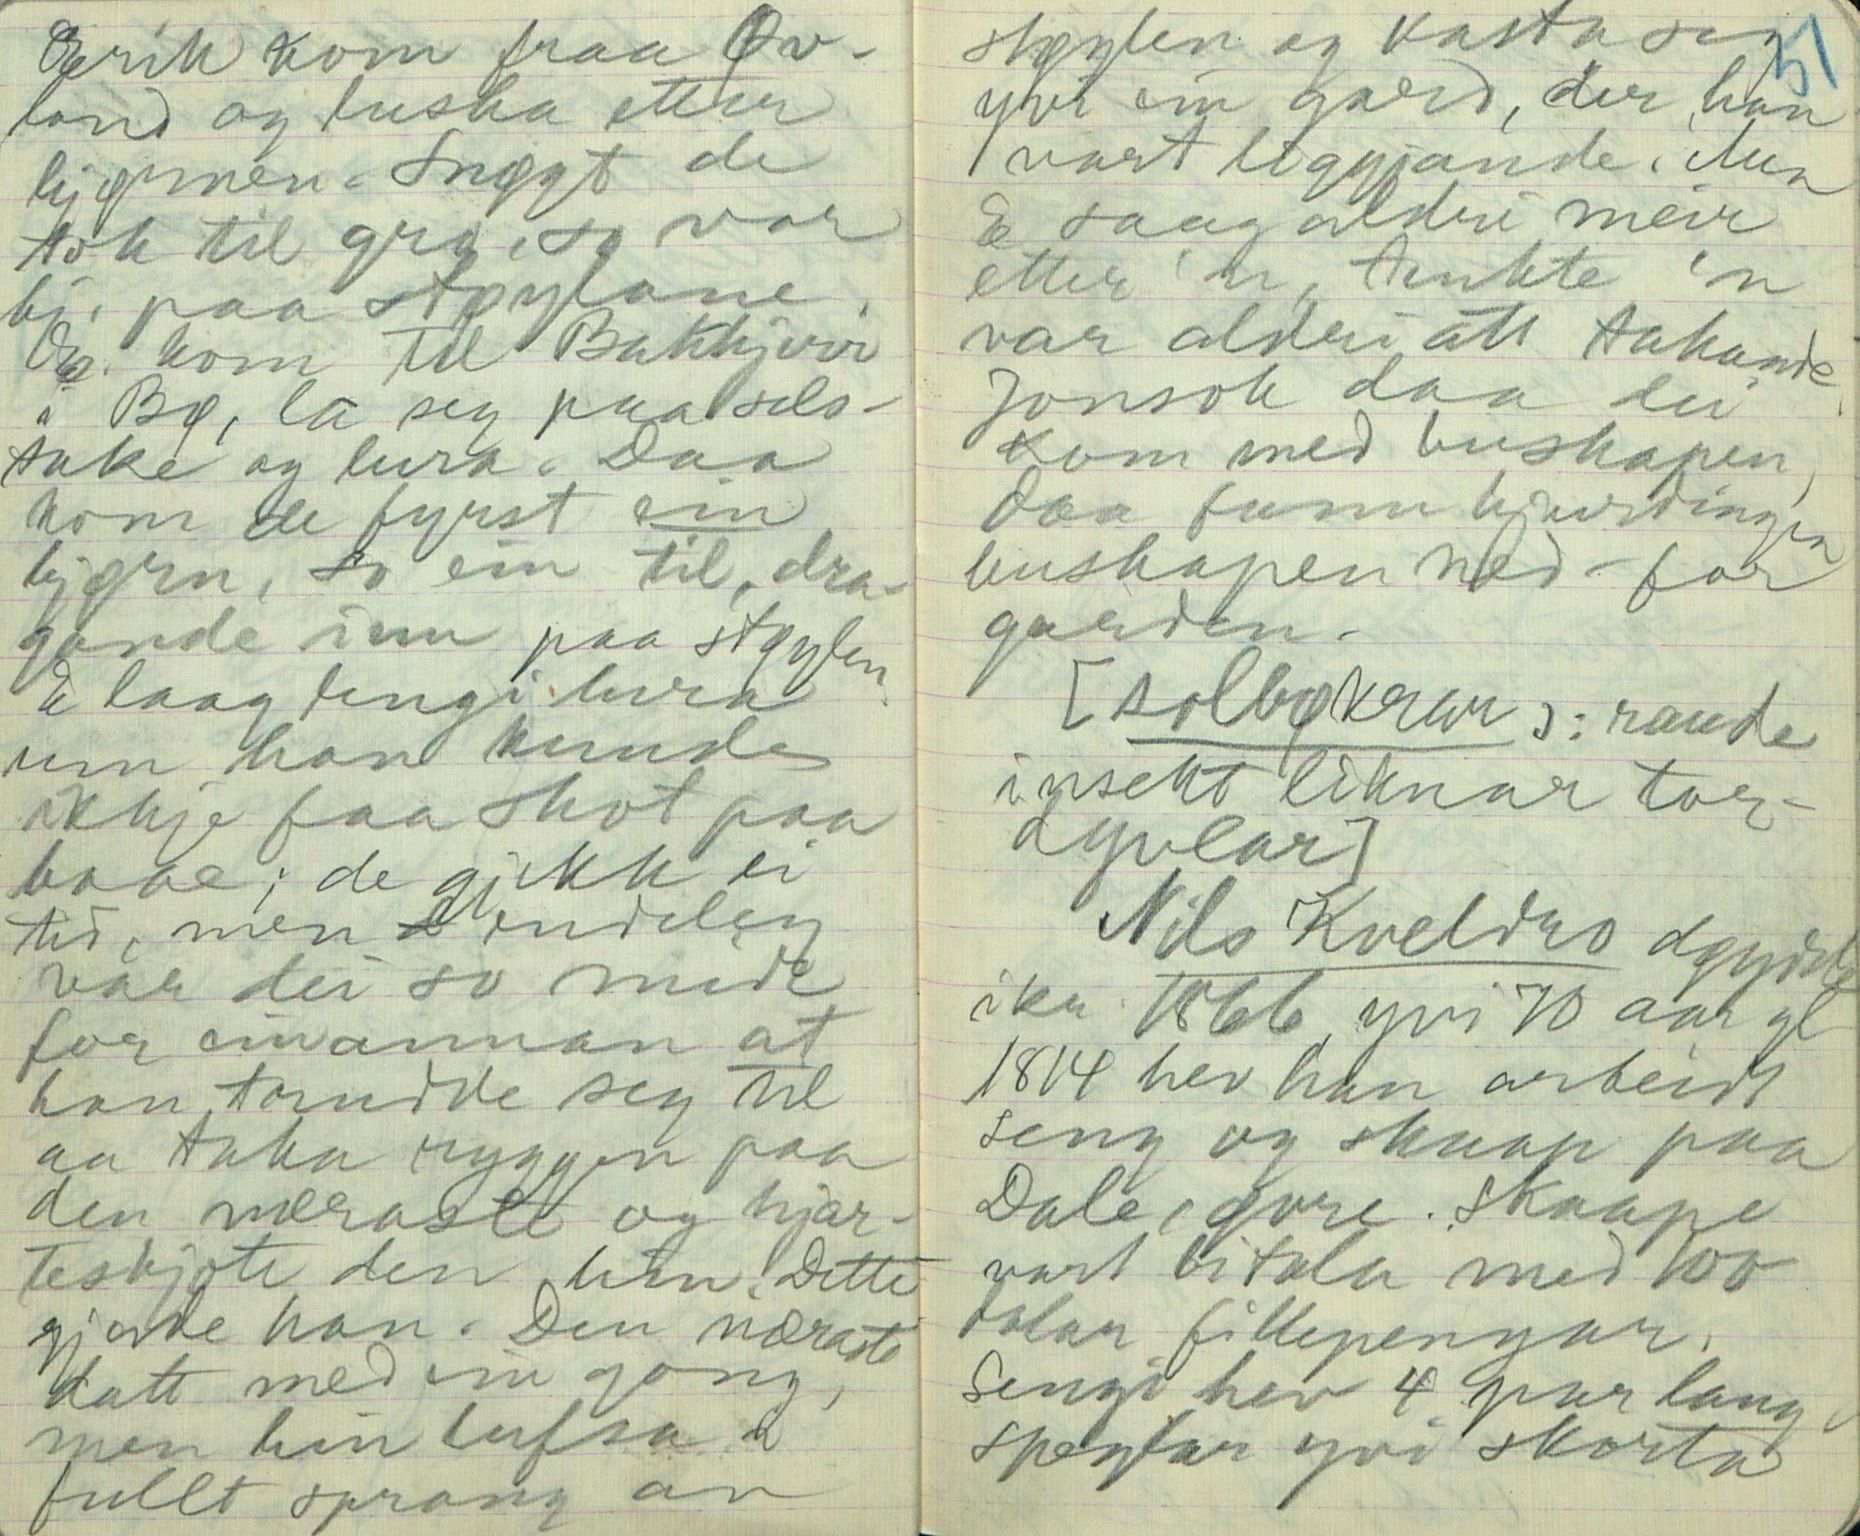 Eerik kom fraa Øv-
land og luska etter
bjørnen. Snøggt de
tok til gro, so var
bj. paa støylane.
Ee. kom til Bakkhjerr
i Bø, la seg paa sels-
take og lura. Daa
kom de fyrst ein
bjørn, so ein til, dra-
gande inn paa støylen.
E laag lengi lura
um han kunde
ikkje faa skot paa
baae; de gjikk ei
tid, men endeleg
var dei so midt
for einannan at
han trudde seg til
aa taka ryggen paa
den næraste og hjar-
teskjote den hin. Dette
gjorde han. Den næraste
datt med ein gong,
men hin lufsa i
fullt sprang av
51
støylen og kasta seg
yvi ein gard, der han
vart liggjande. Men
E saag aldri meir
etter 'n, tenkte 'n
var aldri att takande.
Jonsok daa dei
kom med buskapen,
daa funn hjuringen
buskapen ned-for
garden.
[solbøkrar ɔ: raude
insekt liknar tor-
dyvlar]
Nils Kveldro døydde
ikr. 1866 yvi 70 aar gl
1814 hev han arbeidt
seng og skaap paa
Dale, øvre. Skaape
vart bitala med 100
dalar fillepengar.
Sengi hev 4 par lang
speglar yvi skorta